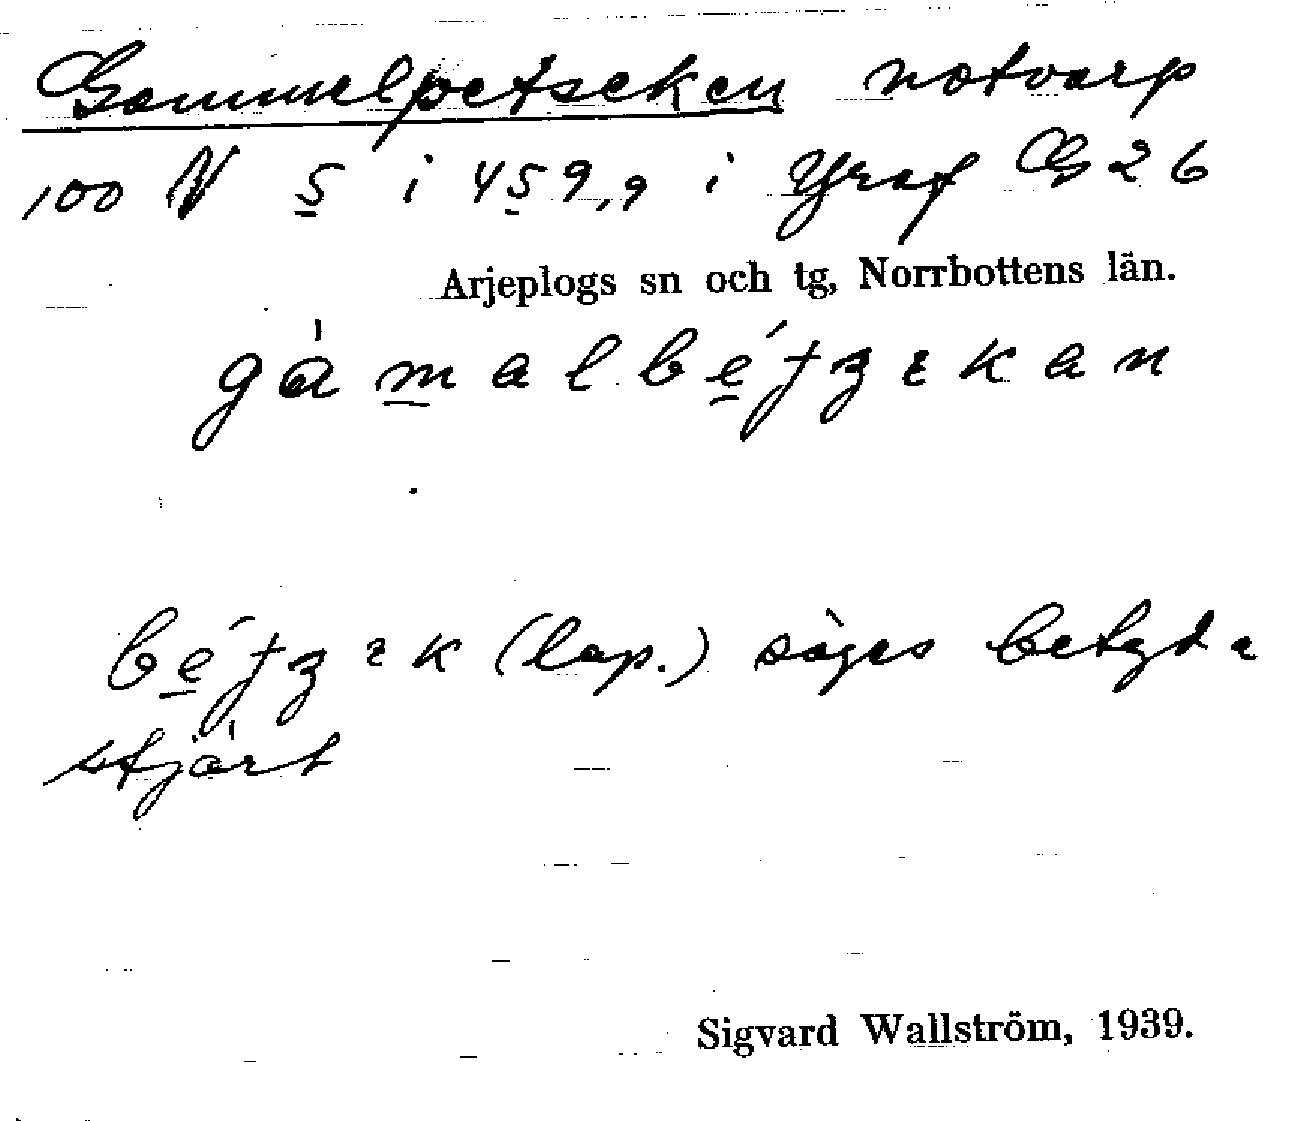 Gammelpetseken notvarp
100 N S i 459,9 i Yraf G 26
Arjeplogs sn och tg, Norrbottens län.
gàmalbétzekan
bétzek (lap.) säges betyda
stjärt
Sigvard Wallström, 1939.